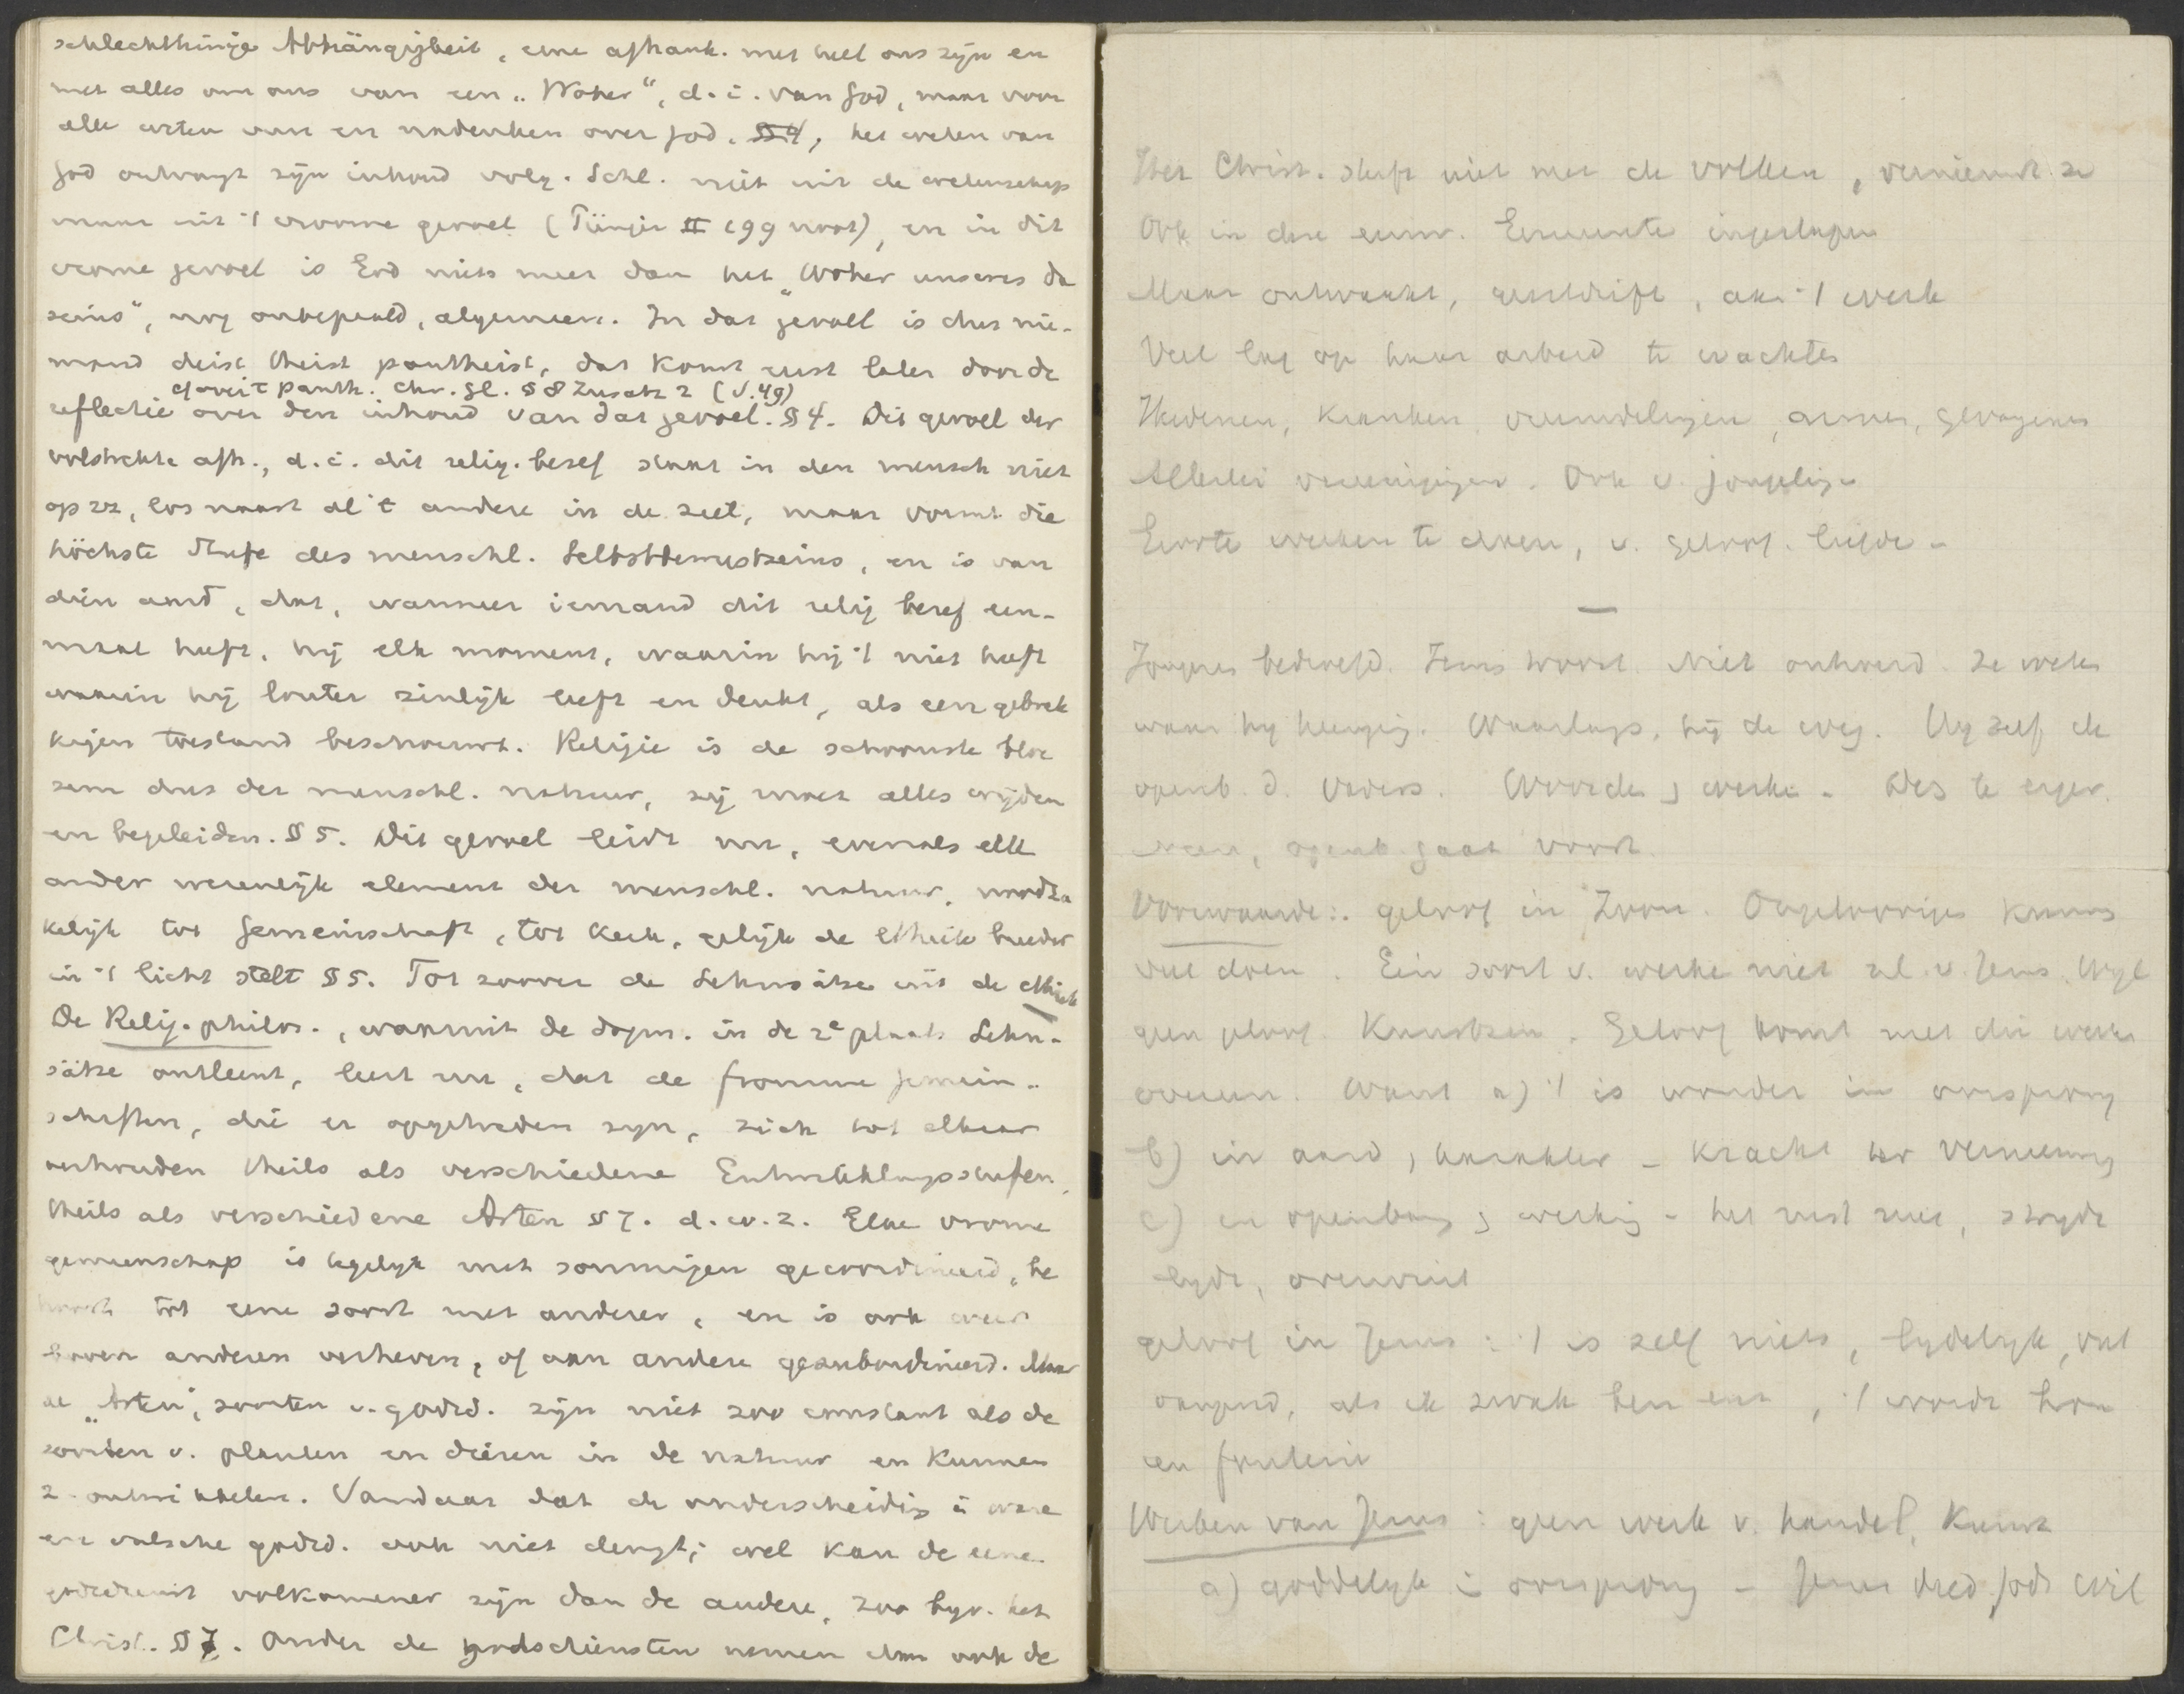 schlechthinige Abhängigkeit, eene afhank. met heel ons zijn en
met alles om ons van een „Woher“, d.i. van God, maar voor
alle weten van en nadenken over God. §4, het weten van
God ontvangt zijn inhoud volg. Schl. niet uit de wetenschap
maar uit 't vrome gevoel ( II 199 noot), en in dit
vrome gevoel is God niets meer dan het „Woher unseres Da
seins“, nog onbepaald, algemeen. In dat gevoel is dus nie-
mand deist theist pantheist, dat komt eerst later door de
over 't panth. chr. Gl. § 8 Zusatz 2 (S. 49)
reflectie over den inhoud van dat gevoel. § 4. Dit gevoel der
volstrekte afh., d.i. dit relig. besef staat in den mensch niet
op zz, los naast al 't andere in de ziel, maar vormt die
höchste Stufe des menschl. Selbstbewustseins, en is van
dien aard, dat, wanneer iemand dit relig besef een-
maal heeft, hij elk moment, waarin hij 't niet heeft
waarin hij louter zinlijk leeft en denkt, als een gebrek
kigen toestand beschouwt. Religie is de schoonste bloe
sem dus der menschl. natuur, zij moet alles wijden
en begeleiden. § 5. Dit gevoel leidt nu, evenals elk
ander wezenlijk element der menschl. natuur, noodza
kelijk tot Gemeinschaft, tot kerk, gelijk de Ethiek breeder
in 't licht stelt § 5. Tot zoover de Lehnsätze uit de ethiek
De Relig. philos., waaruit de dogm. in de 2e plaats Lehn-
sätze ontleent, leert nu, dat de fromme Gemein-
schaften, die er opgetreden zijn, zich tot elkaar
verhouden theils als verschiedene Entwicklungsstufen,
theils als verschiedene Arten § 7. d.w.z. Elke vrome
gemeenschap is tegelijk met sommigen gecoordineerd, be
hoort tot eene soort met anderen, en is ook weer
boven anderen verheven, of aan andere gesubordineerd. Maar
de „Arten“, soorten v. godsd. zijn niet zoo constant als de
soorten v. planten en dieren in de natuur en kunnen
z. ontwikkelen. Vandaar dat de onderscheiding in ware
en valsche godsd. ook niet deugt; wel kan de eene
godsdienst volkomener zijn dan de andere, zoo bijv. het
Christ. § 7. Onder de godsdiensten nemen dan ook de
Het Christ. sluft niet met de volken, vernieuwt ze
Ook in deze eeuw. Gemeente ingeslapen
Maar ontwaakt, aan 't werk
Veel lag op haar arbeid te wachten
Heidenen, kranken, vreemdelingen, armen, gevangenen
Allerlei vereenigingen. Ook v. jongeling
Groote werken te doen, v. geloof. liefde -
—
Jongeren bedroefd. Jezus troost. Niet ontroerd. Ze weten
waar hij heenging. Waarlangs, hij de weg. Hij zelf de
openb. d. Vaders. Woorden, werken.
Neen, openb. gaat voort.
Voorwaarde: geloof in Zoon. Ongeloovigen kunnen
veel doen. Één soort v. werken niet nl. v. Jezus. Wijl
geen geloof. Kunnen. Geloof komt met die werken
overeen. Want a) 't is wonder in oorsprong
b) in aard, karakter - kracht ter vernieuwing
c) in openbaring, werking - het rust niet, strijdt
lijdt, overwint
geloof in Jezus: 't is zelf niets, lijdelijk,
, als ik zwak ben enz, 't wordt
een fontein
Werken van Jezus: geen werk v. handel, kunst
a) goddelijk in oorsprong - Jezus deed Gods wil